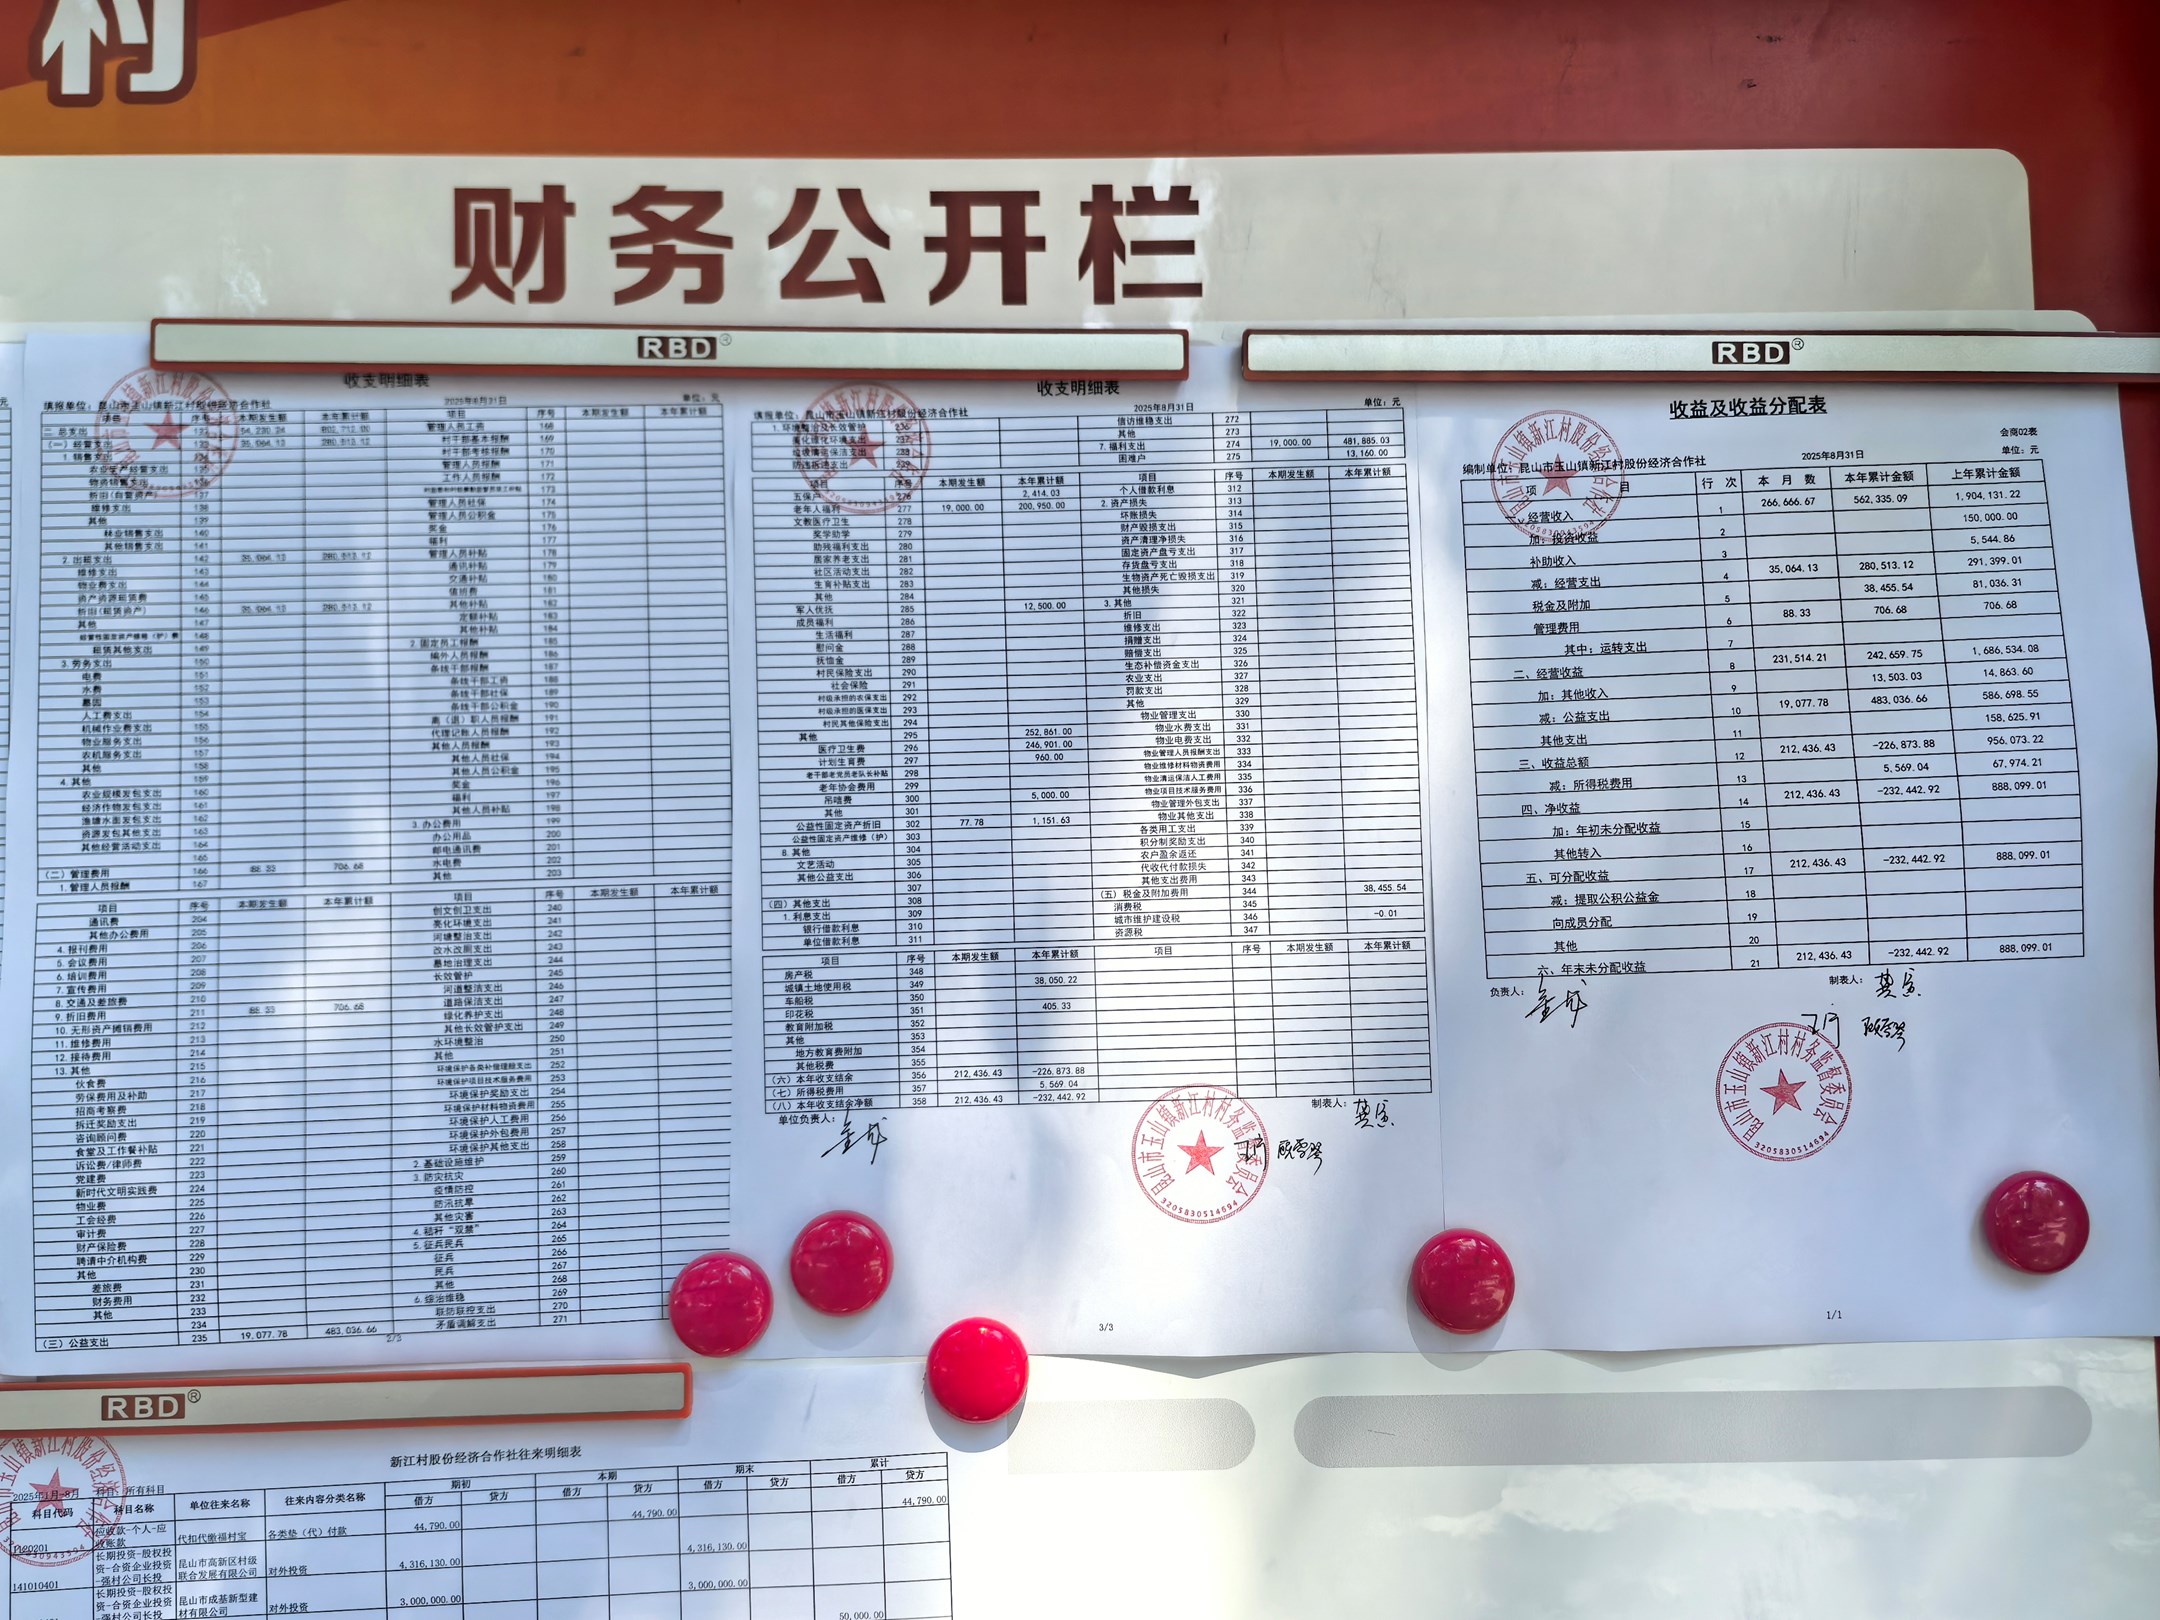 村
财务公开栏
RBD®
RBD®
收支明细表
填报单位：昆山市玉山镇新江村股份经济合作社 2025年8月31日 单位：元
项目 序号 本期发生额 本年累计额 项目 序号 本期发生额 本年累计额
二.总支出 管理人员工资 168
（一）经营支出 35,064.13 280,513.12 村干部基本报酬 169
1.销售支出 村干部考核报酬 170
农业生产经营支出 管理人员报酬 171
物资销售支出 工作人员报酬 172
折旧(自营资产) 173
维修支出 138 管理人员社保 174
其他 139 管理人员公积金 175
林业销售支出 140 奖金 176
其他销售支出 141 福利 177
2.出租支出 142 35,064.13 280,513.12 管理人员补贴 178
维修支出 143 通讯补贴 179
物业费支出 144 交通补贴 180
资产资源租赁费 145 值班费 181
折旧(租赁资产) 146 35,064.13 280,513.12 其他补贴 182
其他 147 定额补贴 183
148 其他补贴 184
租赁其他支出 149 2.固定员工报酬 185
3.劳务支出 150 编外人员报酬 186
电费 151 条线干部报酬 187
水费 152 条线干部工资 188
153 条线干部社保 189
人工费支出 154 条线干部公积金 190
机械作业费支出 155 离（退）职人员报酬 191
物业服务支出 156 代理记账人员报酬 192
农机服务支出 157 其他人员报酬 193
其他 158 其他人员社保 194
4.其他 159 其他人员公积金 195
农业规模发包支出 160 奖金 196
经济作物发包支出 161 福利 197
渔塘水面发包支出 162 其他人员补贴 198
资源发包其他支出 163 3.办公费用 199
其他经营活动支出 164 办公用品 200
165 邮电通讯费 201
（二）管理费用 166 88.33 706.68 水电费 202
1.管理人员报酬 167 其他 203
项目 序号 本期发生额 本年累计额 项目 序号 本期发生额 本年累计额
通讯费 204 创文创卫支出 240
其他办公费用 205 亮化环境支出 241
4.报刊费用 206 河塘整治支出 242
5.会议费用 207 改水改厕支出 243
6.培训费用 208 墓地治理支出 244
7.宣传费用 209 长效管护 245
8.交通及差旅费 210 河道整洁支出 246
9.折旧费用 211 88.33 706.68 道路保洁支出 247
10.无形资产摊销费用 212 绿化养护支出 248
11.维修费用 213 其他长效管护支出 249
12.接待费用 214 水环境整治 250
13.其他 215 其他 251
伙食费 216 环境保护各类补偿理赔支出 252
劳保费用及补助 217 环境保护项目技术服务费用 253
招商考察费 218 环境保护奖励支出 254
拆迁奖励支出 219 环境保护材料物资费用 255
咨询顾问费 220 环境保护人工费用 256
食堂及工作餐补贴 221 环境保护外包费用 257
诉讼费/律师费 222 环境保护其他支出 258
党建费 223 2.基础设施维护 259
新时代文明实践费 224 3.防灾抗灾 260
物业费 225 疫情防控 261
工会经费 226 防汛抗旱 262
审计费 227 其他灾害 263
财产保险费 228 4.秸秆“双禁” 264
聘请中介机构费 229 5.征兵民兵 265
其他 230 征兵 266
差旅费 231 民兵 267
财务费用 232 其他 268
其他 233 6.综治维稳 269
234 联防联控支出 270
（三）公益支出 235 19,077.78 483,036.66 矛盾调解支出 271
2/3
收支明细表
填报单位：昆山市玉山镇新江村股份经济合作社 2025年8月31日 单位：元
1.环境整治及长效管护 236 信访维稳支出 272
美化绿化环境支出 237 其他 273
垃圾清运保洁支出 238 7.福利支出 274 19,000.00 481,885.03
防违拆违支出 239 困难户 275 13,160.00
项目 序号 本期发生额 本年累计额 项目 序号 本期发生额 本年累计额
五保户 276 2,414.03 个人借款利息 312
老年人福利 277 19,000.00 200,950.00 2.资产损失 313
文教医疗卫生 278 坏账损失 314
奖学助学 279 财产毁损支出 315
助残福利支出 280 资产清理净损失 316
居家养老支出 281 固定资产盘亏支出 317
社区活动支出 282 存货盘亏支出 318
生育补贴支出 283 生物资产死亡毁损支出 319
其他 284 其他损失 320
军人优抚 285 12,500.00 3.其他 321
成员福利 286 折旧 322
生活福利 287 维修支出 323
慰问金 288 捐赠支出 324
抚恤金 289 赔偿支出 325
村民保险支出 290 生态补偿资金支出 326
社会保险 291 农业支出 327
村级承担的农保支出 292 罚款支出 328
村级承担的医保支出 293 其他 329
村民其他保险支出 294 物业管理支出 330
其他 295 252,861.00 物业水费支出 331
医疗卫生费 296 246,901.00 物业电费支出 332
计划生育费 297 960.00 物业管理人员报酬支出 333
老干部老党员老队长补贴 298 物业维修材料物资费用 334
老年协会费用 299 物业清运保洁人工费用 335
吊唁费 300 5,000.00 物业项目技术服务费用 336
其他 301 物业管理外包支出 337
公益性固定资产折旧 302 77.78 1,151.63 物业其他支出 338
公益性固定资产维修（护） 303 各类用工支出 339
8.其他 304 积分制奖励支出 340
文艺活动 305 农户盈余返还 341
其他公益支出 306 代收代付款损失 342
307 其他支出费用 343
（四）其他支出 308 （五）税金及附加费用 344 38,455.54
1.利息支出 309 消费税 345
银行借款利息 310 城市维护建设税 346 -0.01
单位借款利息 311 资源税 347
项目 序号 本期发生额 本年累计额 项目 序号 本期发生额 本年累计额
房产税 348
城镇土地使用税 349 38,050.22
车船税 350
印花税 351 405.33
教育附加税 352
其他 353
地方教育费附加 354
其他税费 355
（六）本年收支结余 356 212,436.43 -226,873.88
（七）所得税费用 357 5,569.04
（八）本年收支结余净额 358 212,436.43 -232,442.92
单位负责人： 制表人：
昆山市玉山镇新江村村务监督委员会
3205830514694
3/3
收益及收益分配表
会商02表
编制单位：昆山市玉山镇新江村股份经济合作社 2025年8月31日 单位：元
项目 行次 本月数 本年累计金额 上年累计金额
一、经营收入 1 266,666.67 562,335.09 1,904,131.22
加：投资收益 2 150,000.00
补助收入 3 5,544.86
减：经营支出 4 35,064.13 280,513.12 291,399.01
税金及附加 5 38,455.54 81,036.31
管理费用 6 88.33 706.68 706.68
其中：运转支出 7
二、经营收益 8 231,514.21 242,659.75 1,686,534.08
加：其他收入 9 13,503.03 14,863.60
减：公益支出 10 19,077.78 483,036.66 586,698.55
其他支出 11 158,625.91
三、收益总额 12 212,436.43 -226,873.88 956,073.22
减：所得税费用 13 5,569.04 67,974.21
四、净收益 14 212,436.43 -232,442.92 888,099.01
加：年初未分配收益 15
其他转入 16
五、可分配收益 17 212,436.43 -232,442.92 888,099.01
减：提取公积公益金 18
向成员分配 19
其他 20
六、年末未分配收益 21 212,436.43 -232,442.92 888,099.01
负责人： 制表人：
昆山市玉山镇新江村村务监督委员会
3205830514694
1/1
RBD®
新江村股份经济合作社往来明细表
2025年1月-8月 科目：所有科目
科目代码 科目名称 单位往来名称 往来内容分类名称 期初 本期 期末 累计
借方 贷方 借方 贷方 借方 贷方 借方 贷方
应收款-个人-应收账款 代扣代缴福村宝 各类垫（代）付款 44,790.00 44,790.00 44,790.00
141010401 长期投资-股权投资-合资企业投资-强村公司长投 昆山市高新区村级联合发展有限公司 对外投资 4,316,130.00 4,316,130.00
长期投资-股权投资-合资企业投资-强村公司长投 昆山市成基新型建材有限公司 对外投资 3,000,000.00 3,000,000.00
50,000.00